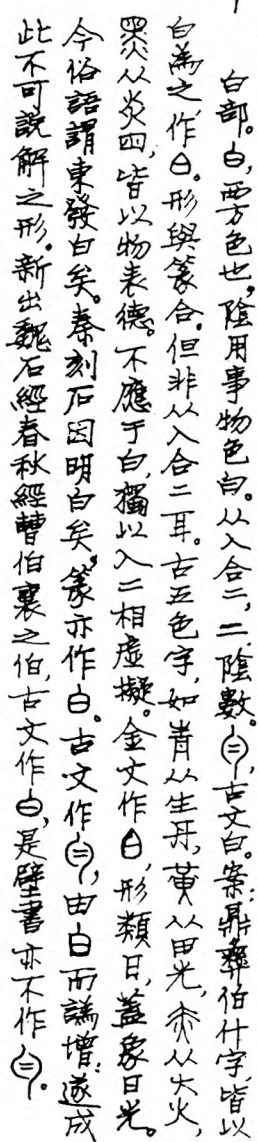 白部。白，西方色也。陰用事物色白。从入合二，二陰數。古文白。案：鼎彝伯什字，皆以
白為之，作。形與篆合。但非从入合二耳。古五色字，如青从生丹，黃从田光，赤从大火，
黑从炎囱，皆以物表德。不應于白，獨以入二相虛擬。金文作，形類日，蓋象日光。
今俗語謂東發白矣。秦刻石因明白矣，篆亦作白。古文作，由白而譌增：遂成
此不可說解之形。新出魏石經春秋經曹伯襄之伯，古文作，是壁書亦不作。